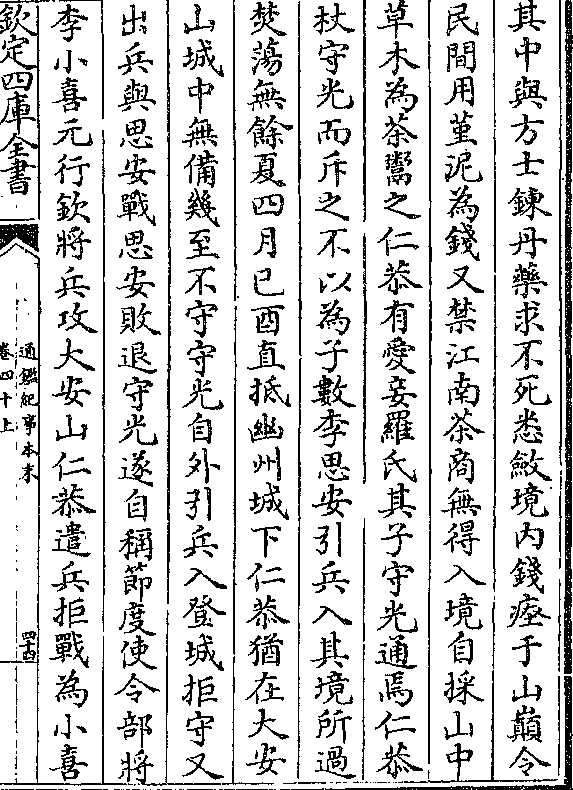 其中與方士鍊丹藥求不死悉斂境内錢瘞于山巔令
民間用堇泥為錢又禁江南茶商無得入境自採山中
草木為茶鬻之仁恭有愛妾羅氏其子守光通焉仁恭
杖守光而斥之不以為子數李思安引兵入其境所過
焚蕩無餘夏四月己酉直抵幽州城下仁恭猶在大安
山城中無備幾至不守守光自外引兵入登城拒守又
出兵與思安戰思安敗退守光遂自稱節度使令部將
李小喜元行欽將兵攻大安山仁恭遣兵拒戰為小喜
欽定四庫全書
通鑑紀事本末
卷四十上
四十四